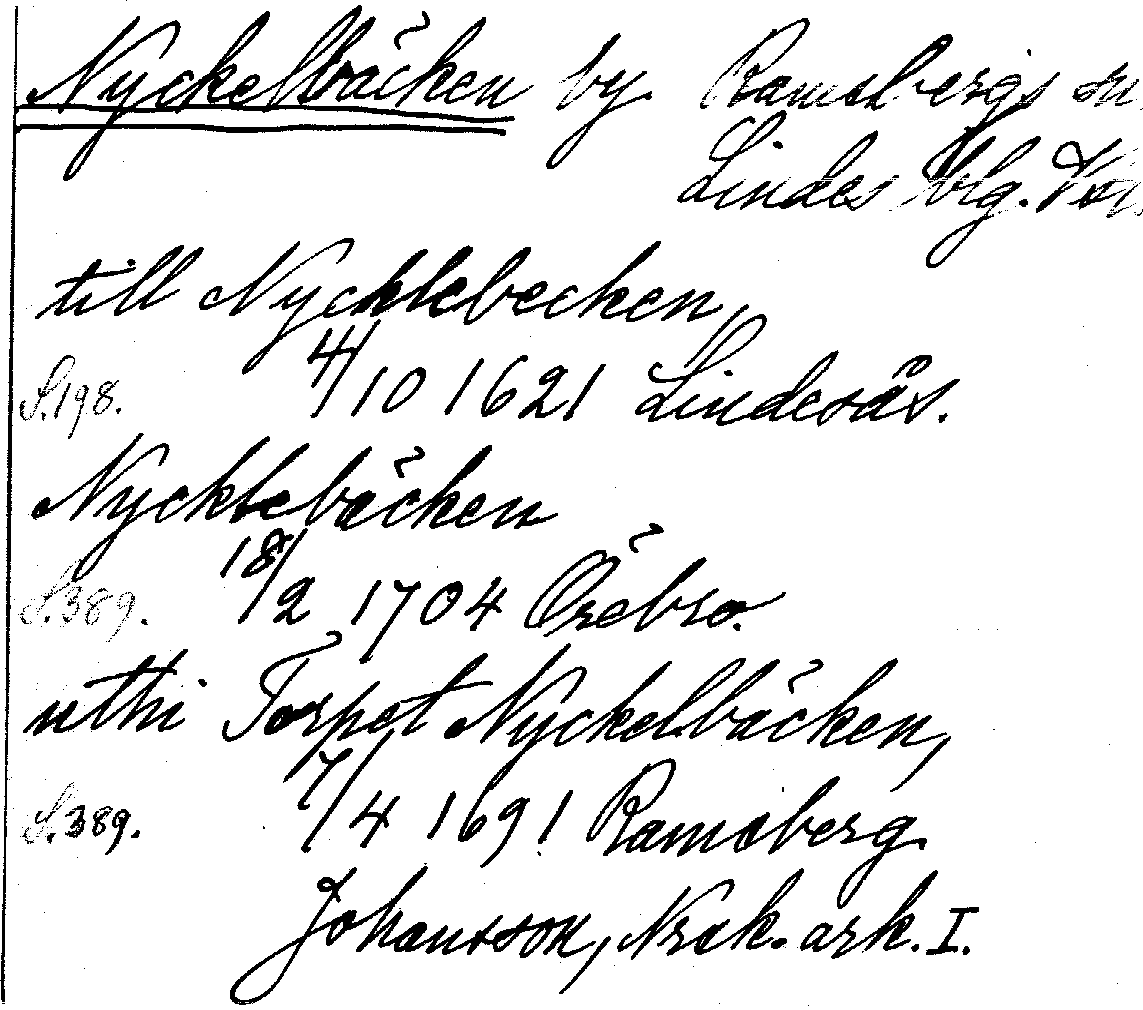 Nyckelbäcken by Ramsbergs sn
Lindes blg. Vstm.
till Nycklebecken,
S.198. 4/10 1621 Lindesås.
Nycklebäcken
S.389. 18/2 1704 Örebro.
uthi Torpet Nyckelbäcken,
S.389. 7/4 1691 Ramsberg
Johansson, Nrak. ark. I.